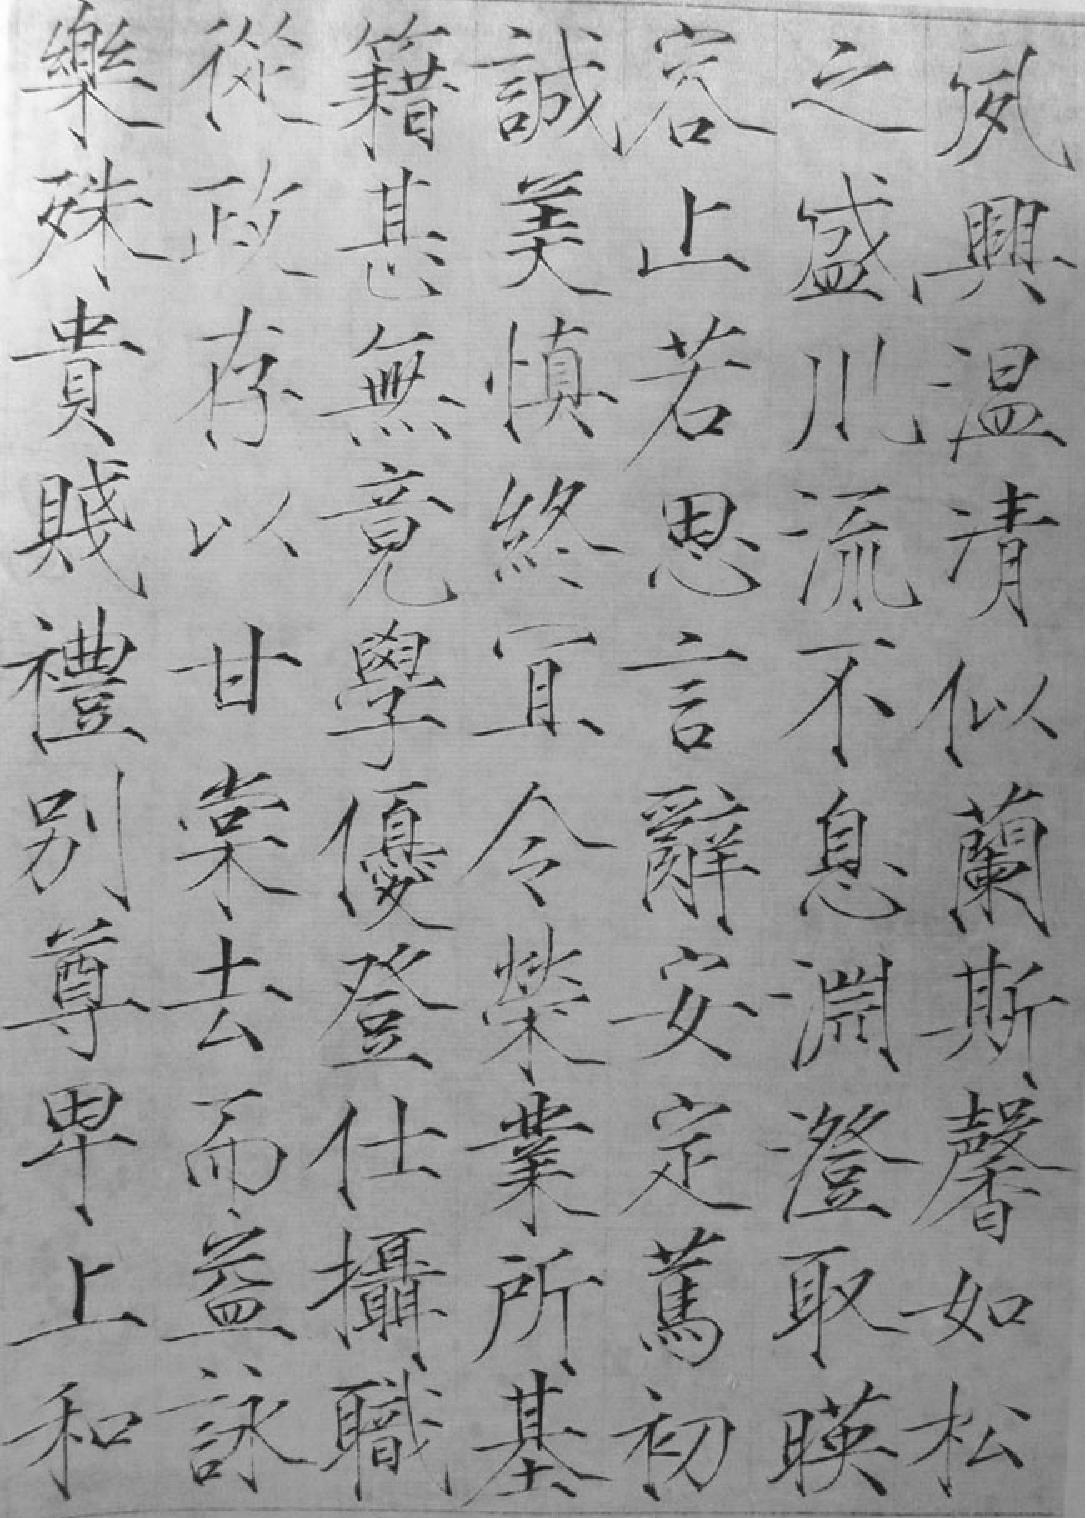 夙興温凊似蘭斯馨如松
之盛川流不息淵澄取暎
容止若思言辭安定篤初
誠美慎終宜令榮業所基
籍甚無竟學優登仕攝職
從政存以甘棠去而益詠
樂殊貴賤禮別尊卑上和